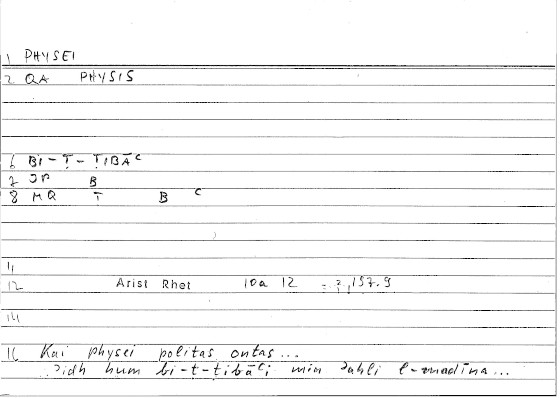 1 PHYSEI
2 QA PHYSIS
6 BI-Ṭ-ṬIBĀC
7 JP B
8 MQ Ṭ B C
11
12 Arist Rhet 10a 12 = ,157.9
14
16 Kai physei politas ontas...
ʾidh hum bi-ṭ-ṭibāʿi min ʾahli l-madīna...